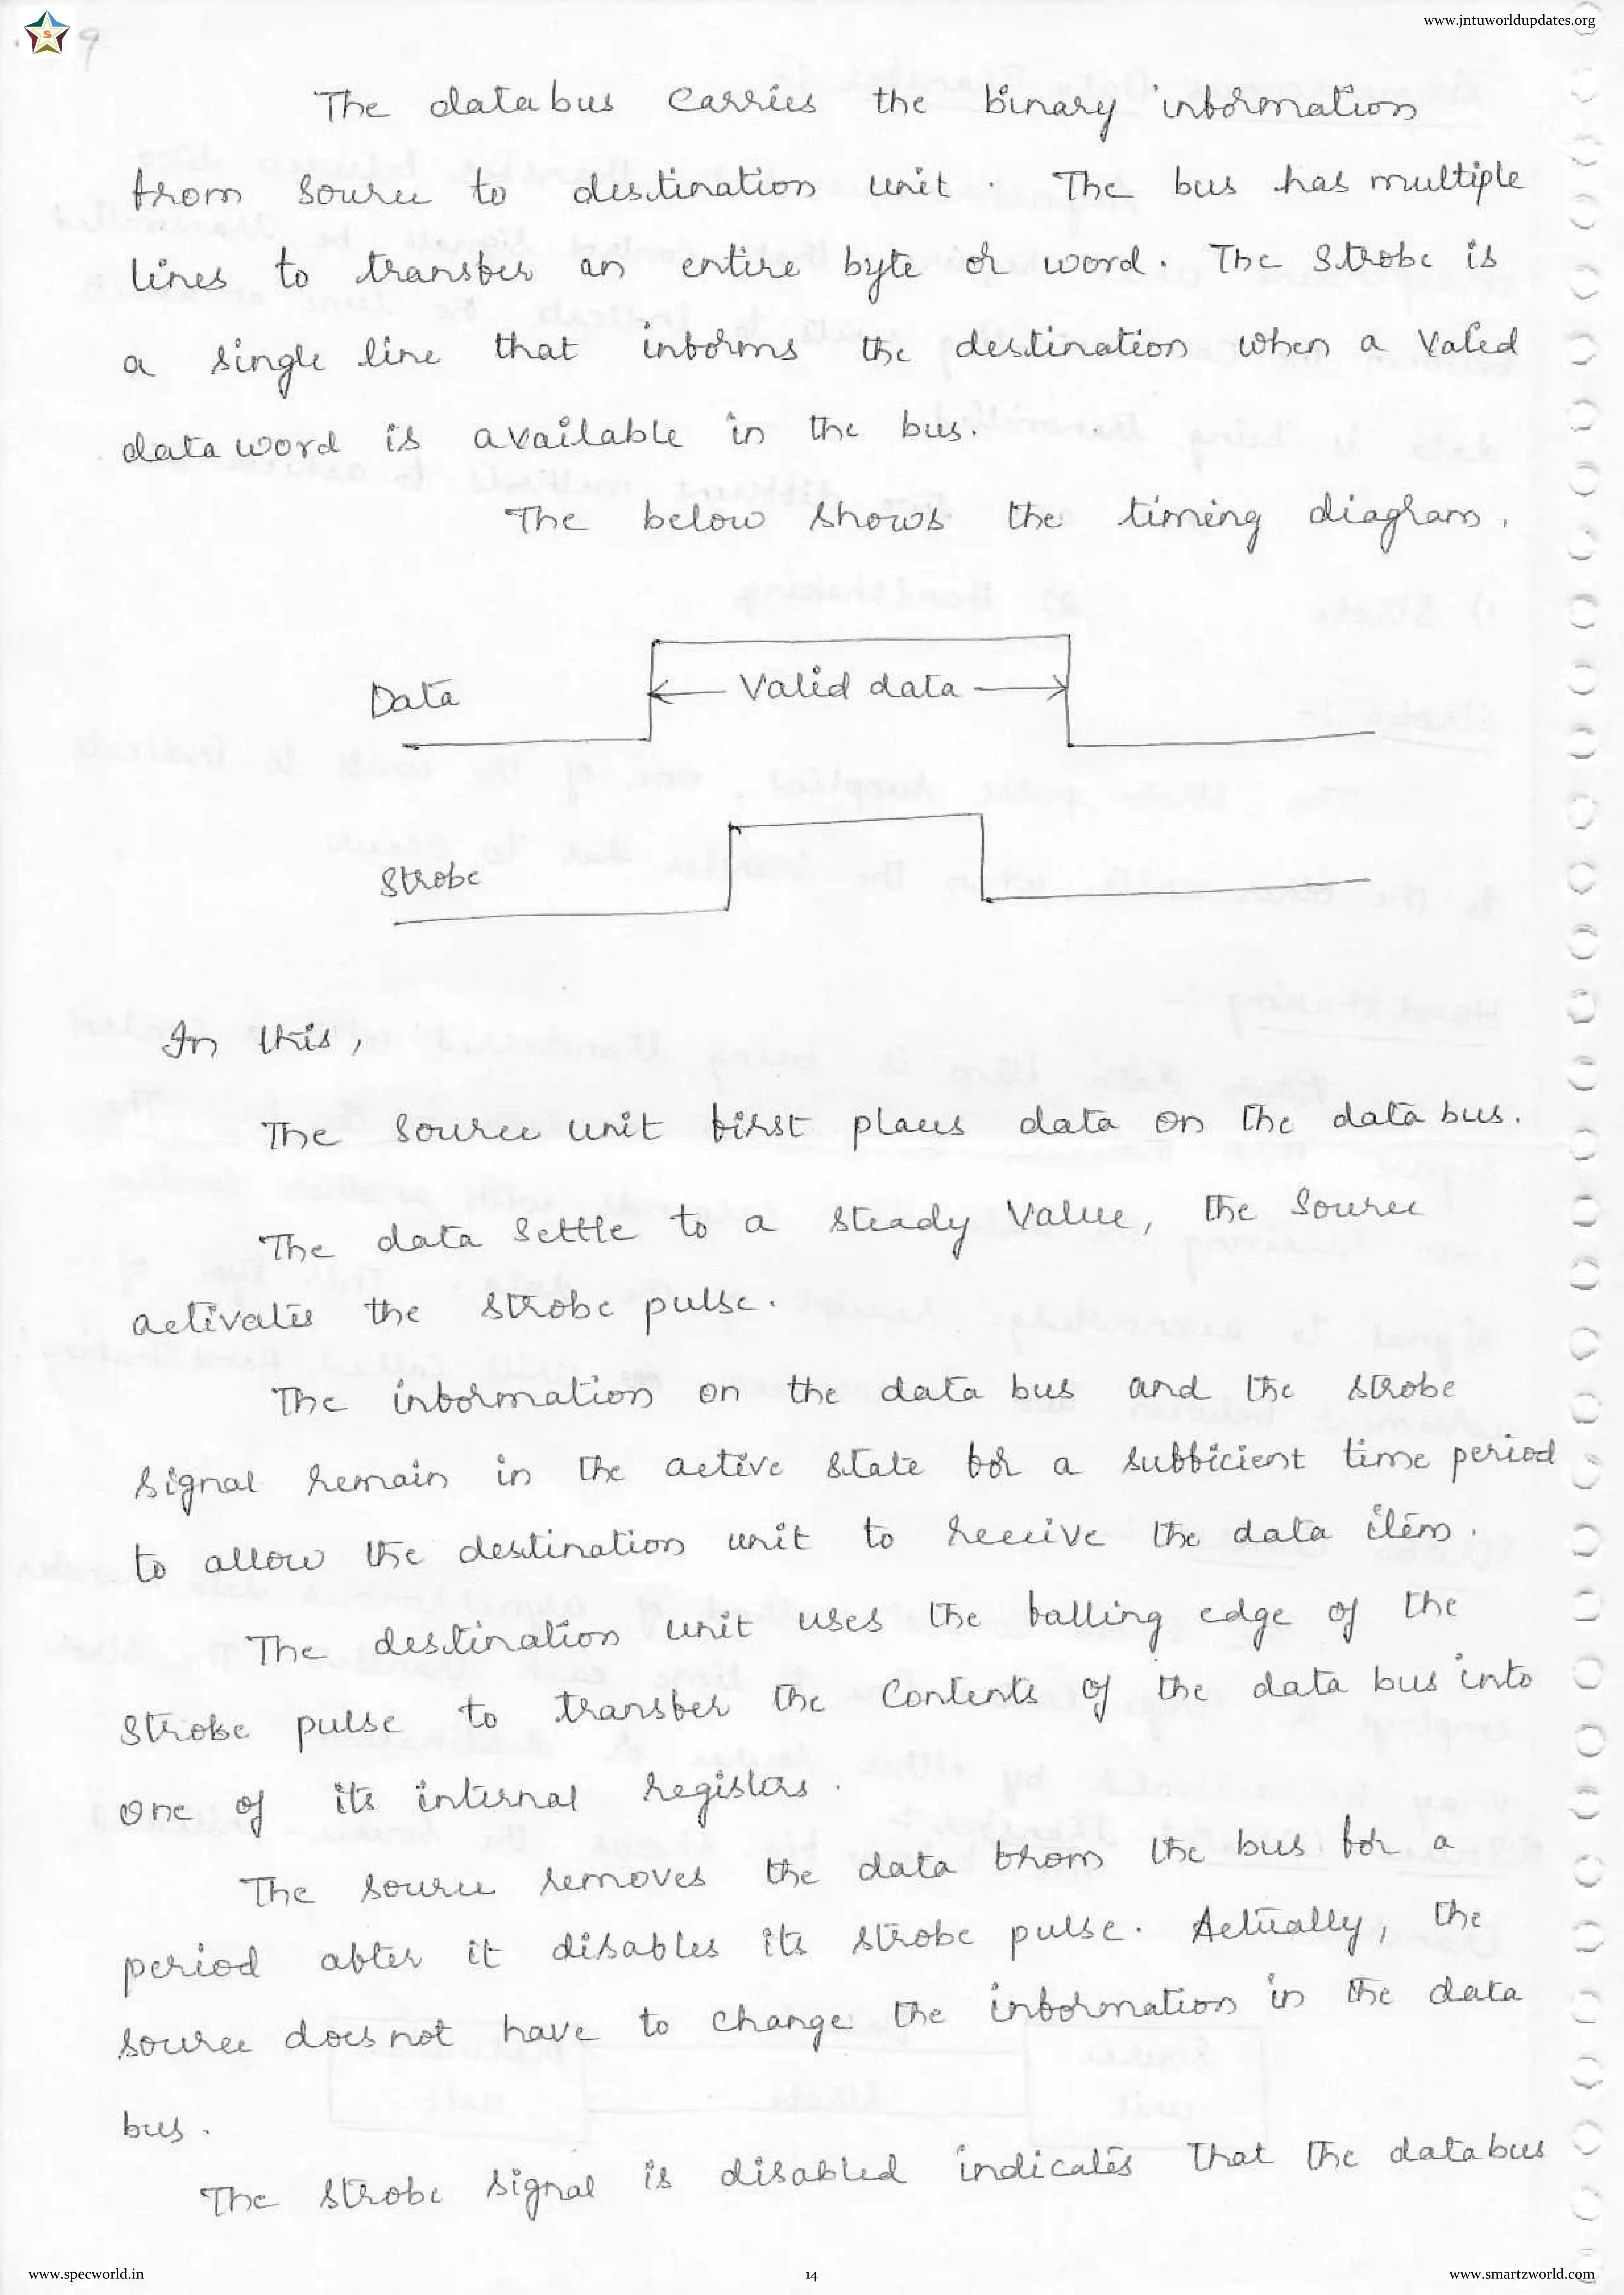 www.jntuworldupdates.org
S
9
The data bus carries the binary information
from source to destination unit. The bus has multiple
lines to transfer an entire byte or word. The strobe is
a single line that informs the destination when a valid
data word is available in the bus.
The below shows the timing diagram.
Data
Valid data
Strobe
In this,
The source unit first places data on the data bus.
The data settle to a steady value, the source
activates the strobe pulse.
The information on the data bus and the strobe
signal remain in the active state for a sufficient time period
to allow the destination unit to receive the data item.
The destination unit uses the falling edge of the
strobe pulse to transfer the contents of the data bus into
one of its internal registers.
The source removes the data from the bus for a
period after it disables its strobe pulse. Actually, the
source does not have to change the information in the data
bus.
The strobe signal is disabled indicates that the data bus
www.specworld.in
14
www.smartzworld.com